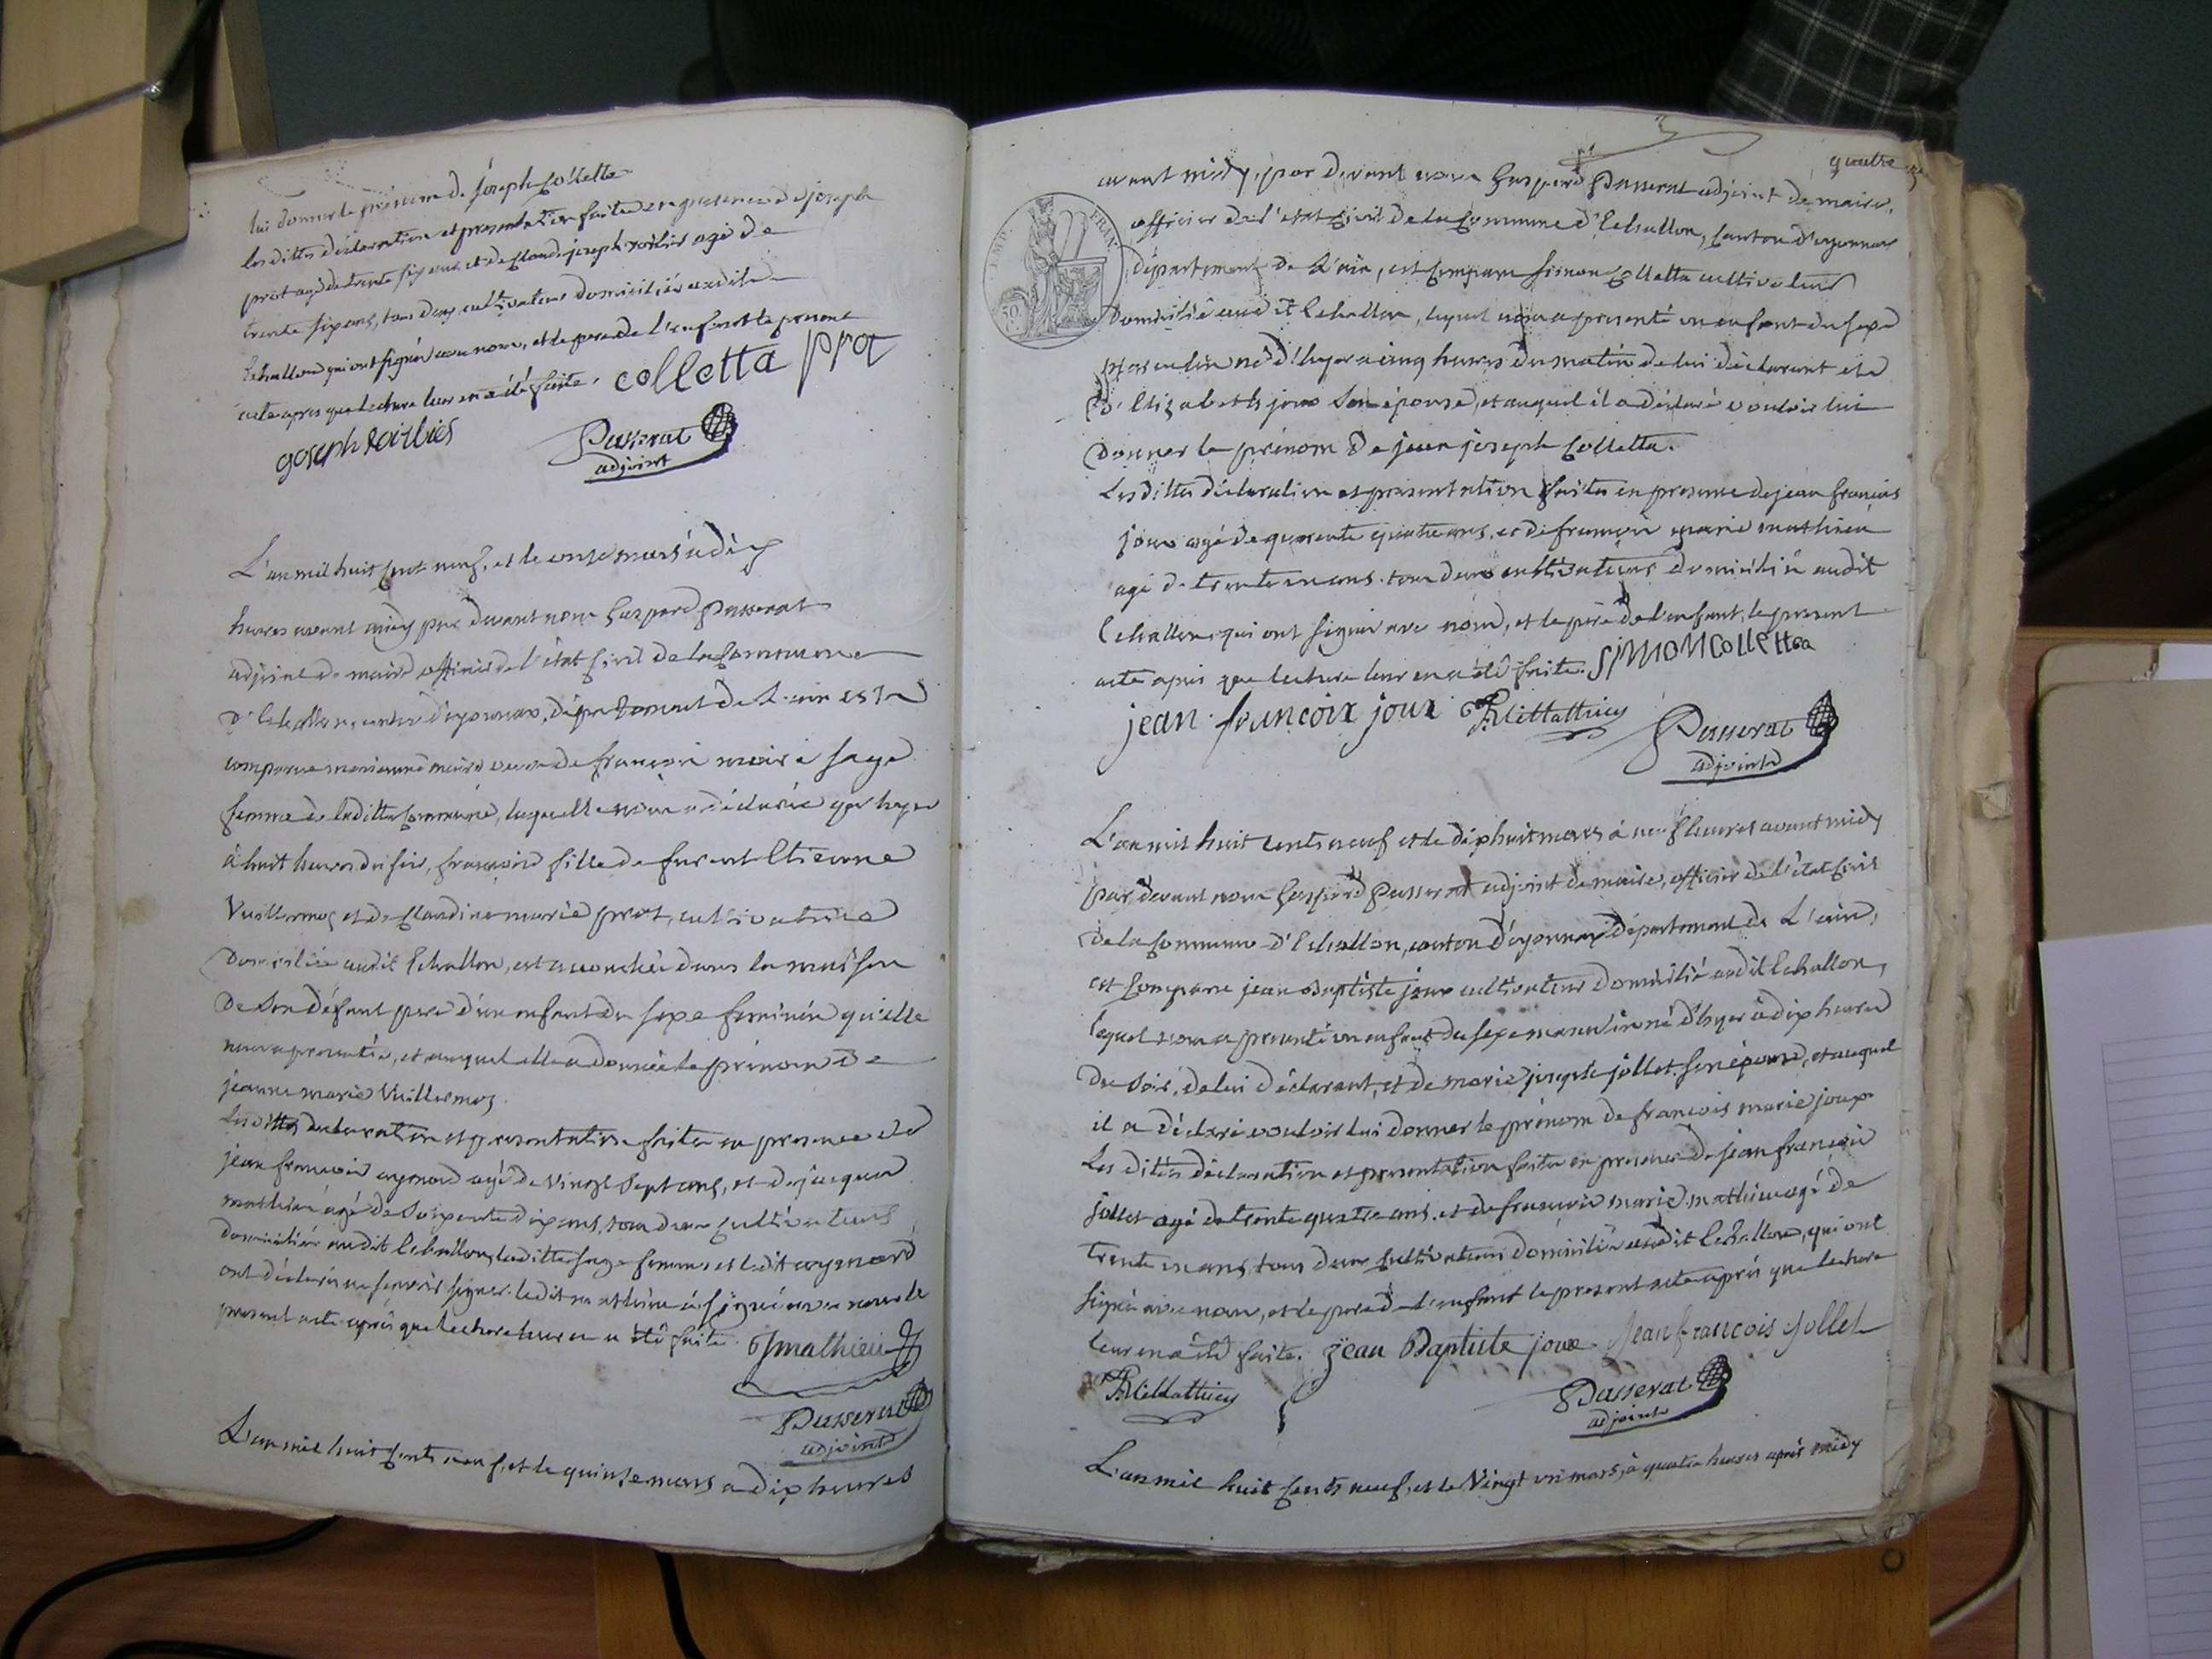 lui donner le prénom de joseph Colletta
les dittes déclaration et presentation faites en presence de joseph
prost agé de trente six ans et de Claude joseph agé de
trente six ans, tous deux cultivateurs domiciliés audit
Echallon qui ont signés avec nous, et le pere de l'enfant le present
acte apres que lecture leur en a été faite. colletta pro
goseph
Passerat
adjoint
L'an mil huit cent neuf, et le onze mars à dix
heures avant midy par devant nous Gaspard Passerat
adjoint de maire officier de l'état civil de la Commune
d'Echallon, canton d'oyonnax, département de L'ain est
comparue marianne maire veuve de francois maire sage
femme de laditte commune, laquelle nous a déclarée que hyer
à huit heures du soir, francoise fille de furent Etienne
Vuillermoz et de Claudine marie prost, cultivatrice
domiciliée audit Echallon, est accouchée dans la maison
de son défunt pere d'un enfant du sexe feminin qu'elle
nous a presentée, et auquel elle a donnée le prénom de
jeanne marie Vuillermoz.
Les dittes declaration et presentation faites en presence de
jean francois aymard agé de vingt sept ans, et de jacques
mathieu agé de soixante dix ans, tous deux cultivateurs
domiciliés audit Echallon, laditte sage femme et ledit aymard
ont déclarés ne savoir signer. ledit mathieu a signé avec nous le
present acte après que lecture leur en a été faite. Jmathieu
Passerat
adjoint
L'an mil huit cents neuf, et le quinze mars a dix heures
quatre
avant midy, par devant nous Gaspard Passerat adjoint de maire,
officier de l'état civil de la Commune d'Echallon, Canton d'oyonnax
département de L'ain, est comparu Simon Colletta cultivateur
domicilié audit Echallon, lequel nous a presenté un enfant du sexe
masculin né d'hyer a cinq heures du matin de lui déclarant et
d'Elizabeth joux son épouse, et auquel il a déclaré vouloir lui
donner le prénom de jean joseph Colletta.
Les dittes déclaration et presentation faites en presence de jean francois
joux agé de quarante quatre ans, et de francois marie mathieu
agé de trente un ans. tous deux cultivateurs domiciliés audit
Echallon, qui ont signés avec nous, et le père de l'enfant, le present
acte après que lecture leur en a été faite. SiMON Colletta
jean francoix joux FMMathieu Passerat
adjoint
L'an mil huit cents neuf et le dix huit mars à neuf heures avant midy
par devant nous Gaspard Passerat adjoint de maire, officier de l'état civil
de la Commune d'Echallon, canton d'oyonnax département de L'ain,
est Comparu jean Baptiste joux cultivateur domicilié audit Echallon,
lequel nous a presenté un enfant du sexe masculin né d'hyer à dix heures
du soir, de lui déclarant, et de marie josephe jollet son épouse, et auquel
il a déclaré vouloir lui donner le prénom de francois marie joux.
Les dites déclaration et presentation faites en presence de jean francois
jollet agé de trente quatre ans. et de francois marie mathieu agé de
trente un ans, tous deux cultivateurs domiciliés audit Echallon, qui ont
signés avec nous, et le pere de l'enfant le present acte après que lecture
leur en a été faite. jean Baptiste joux Jean francois Jollet
FMMathieu Passerat
adjoint
L'an mil huit cents neuf, et le Vingt un mars, à quatre heures après midy